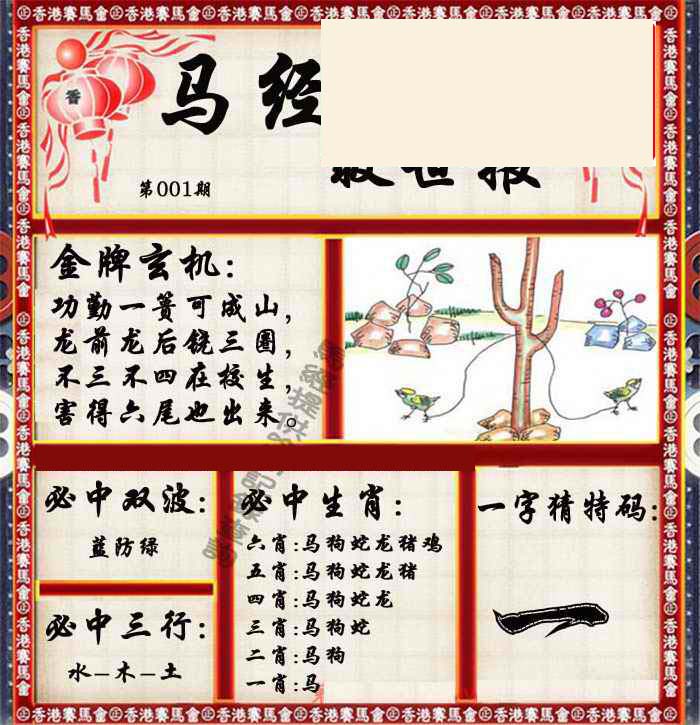 香港賽馬會
马经
救世报
第001期
香
金牌玄机:
功勤一篑可成山,
龙前龙后饶三圈,
不三不四在校生,
害得六尾也出来。
必中双波:
蓝防绿
必中三行:
水—木—土
必中生肖:
六肖:马狗蛇龙猪鸡
五肖:马狗蛇龙猪
四肖:马狗蛇龙
三肖:马狗蛇
二肖:马狗
一肖:马
一字猜特码:
一